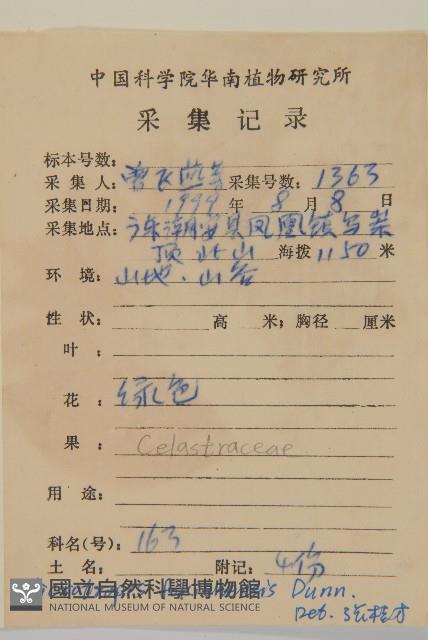 中国科学院华南植物研究所
采集记录
标本号数:
采集人: 曾飞燕等 采集号数: 1363
采集日期: 1999 年 8 月 8 日
采集地点: 广东潮安县凤凰镇乌岽
顶 北山 海拨 1150 米
环境: 山地、山谷
性状: 高 米; 胸径 厘米
叶:
花: 绿色
果: Celastraceae
用途:
科名(号): 163
土名: 附记: 4份
國立自然科學博物館 Dunn.
NATIONAL MUSEUM OF NATURAL SCIENCE Det. 张桂才